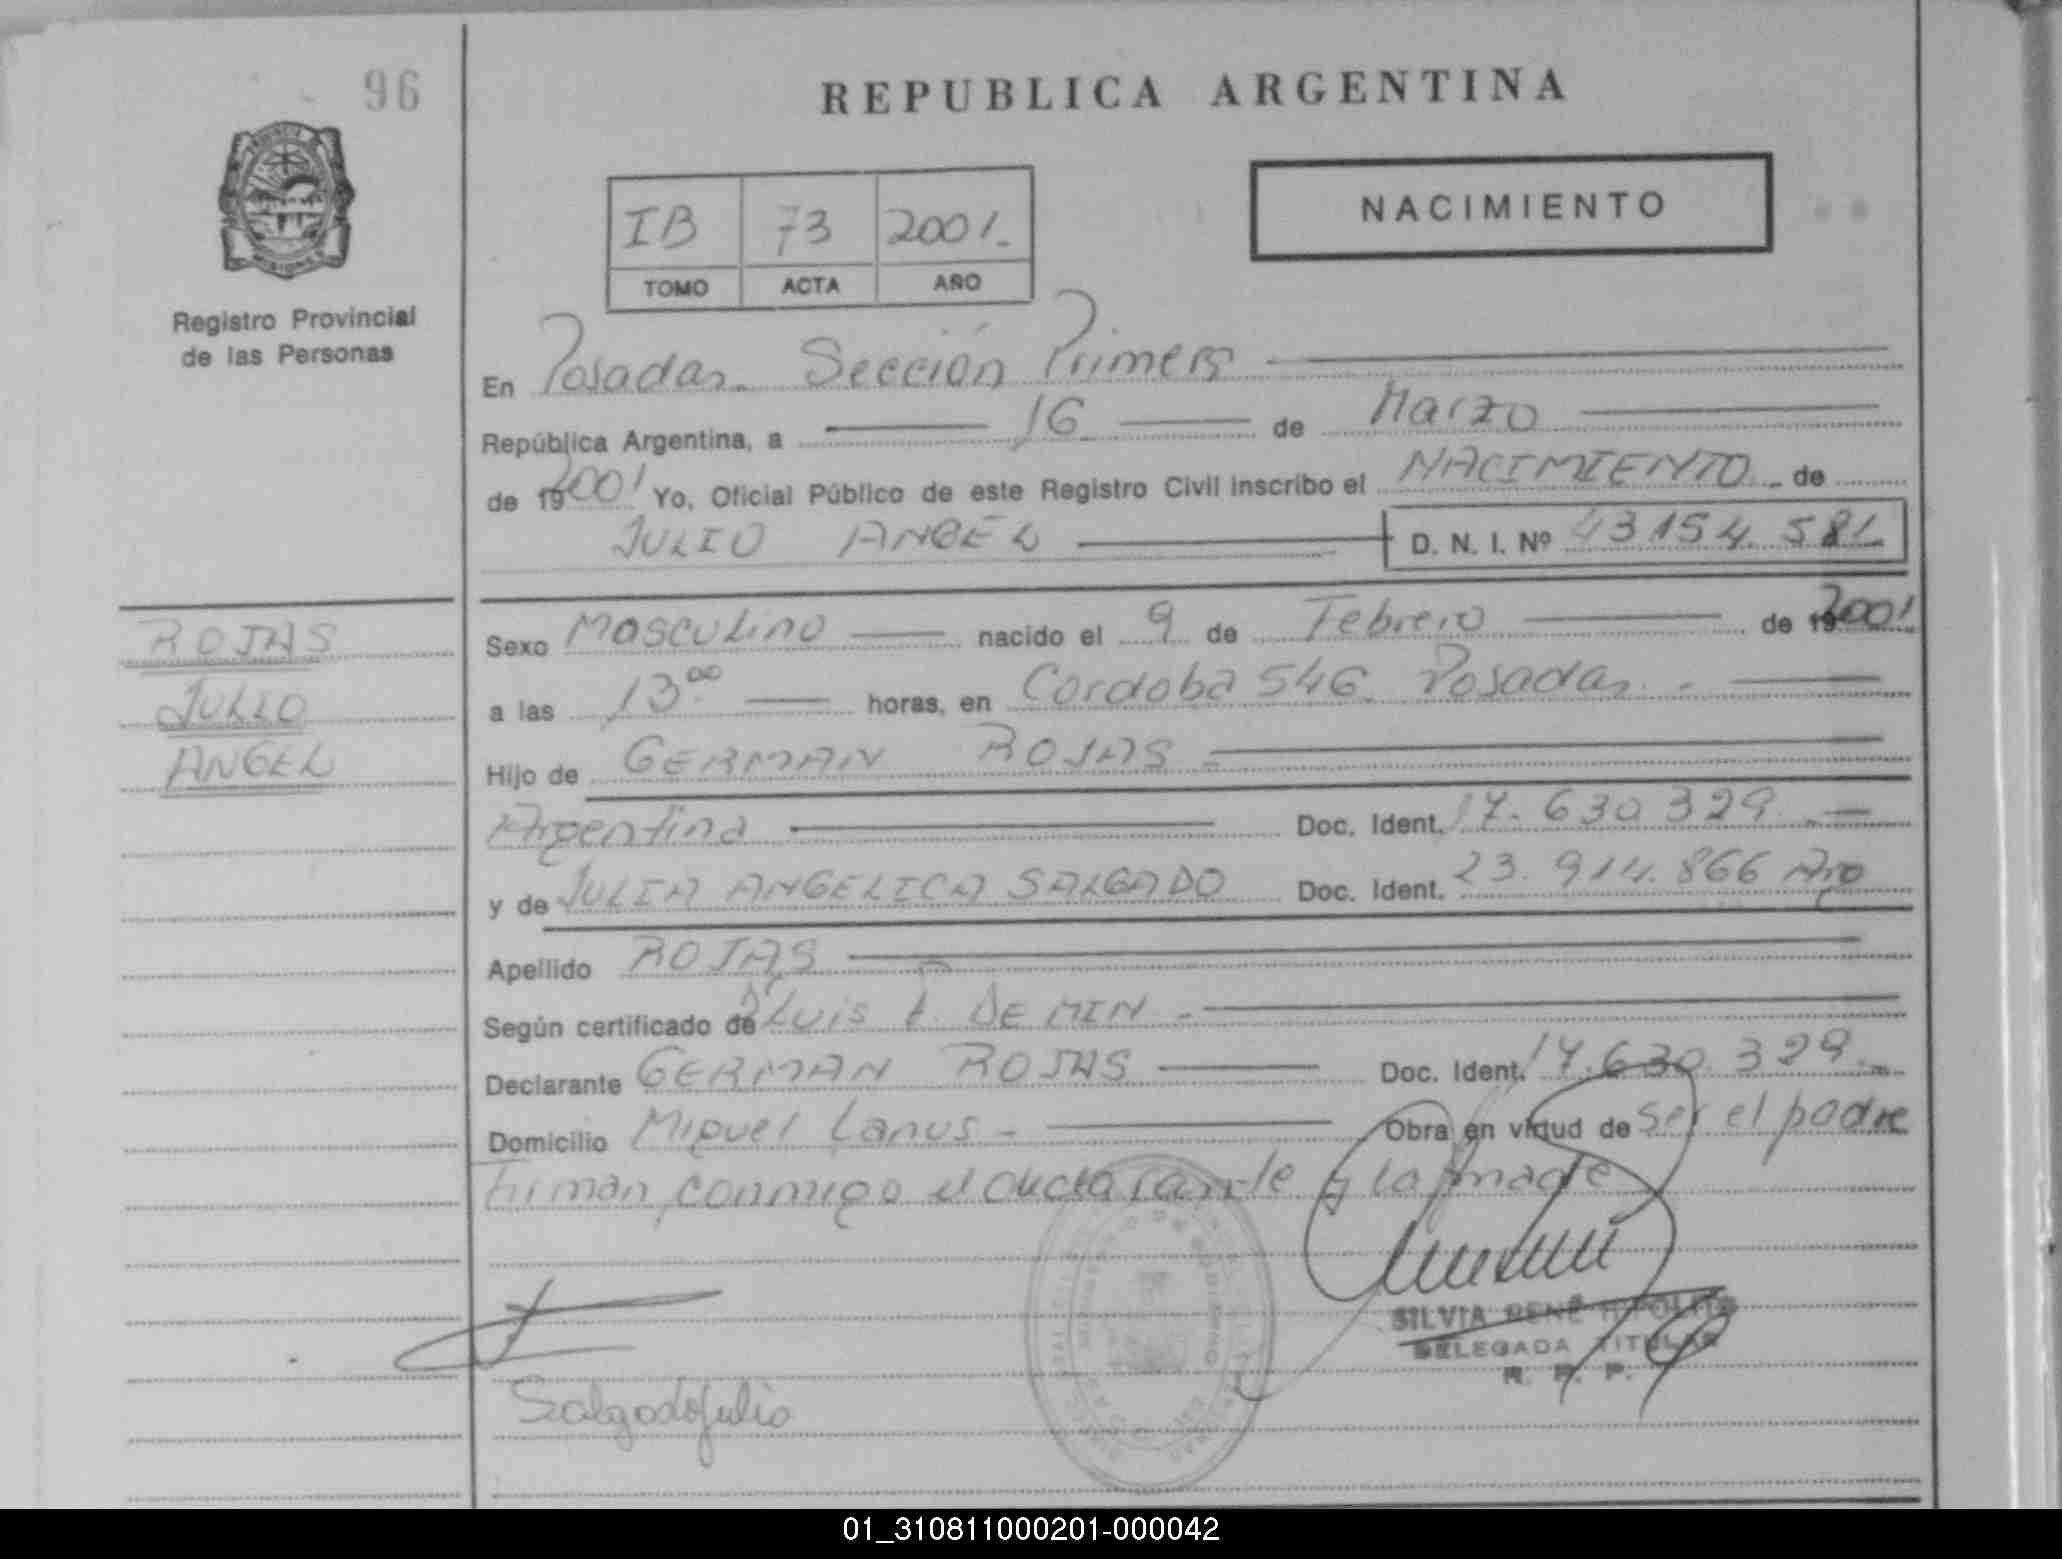 96
REPUBLICA ARGENTINA
NACIMIENTO
IB 73 2001.
TOMO ACTA AÑO
MISIONES
Registro Provincial
de las Personas
En Posadas. Sección Primera
República Argentina, a 16 de Marzo
de 19 2001 Yo, Oficial Público de este Registro Civil inscribo el NACIMIENTO de
JULIO ANGEL D. N. I. Nº 43154.581
ROJAS
JULIO
ANGEL
Sexo Masculino nacido el 9 de Febrero de 19 2001.
a las 13.00 horas, en Cordoba 546. Posadas.-
Hijo de GERMAN ROJAS
Argentina Doc. Ident. 17.630.329.
y de JULIA ANGELICA SALGADO Doc. Ident. 23.914.866 Arg
Apellido ROJAS
Según certificado de Luis DEMIN.
Declarante GERMAN ROJAS Doc. Ident. 17.630.329.
Domicilio Miguel Lanus - Obra en virtud de ser el padre
Firman conmigo el declarante y la madre
SILVIA RENÉ HIPOLITO
DELEGADA TITULAR
R. P. P.
Salgado Julia
01_310811000201-000042